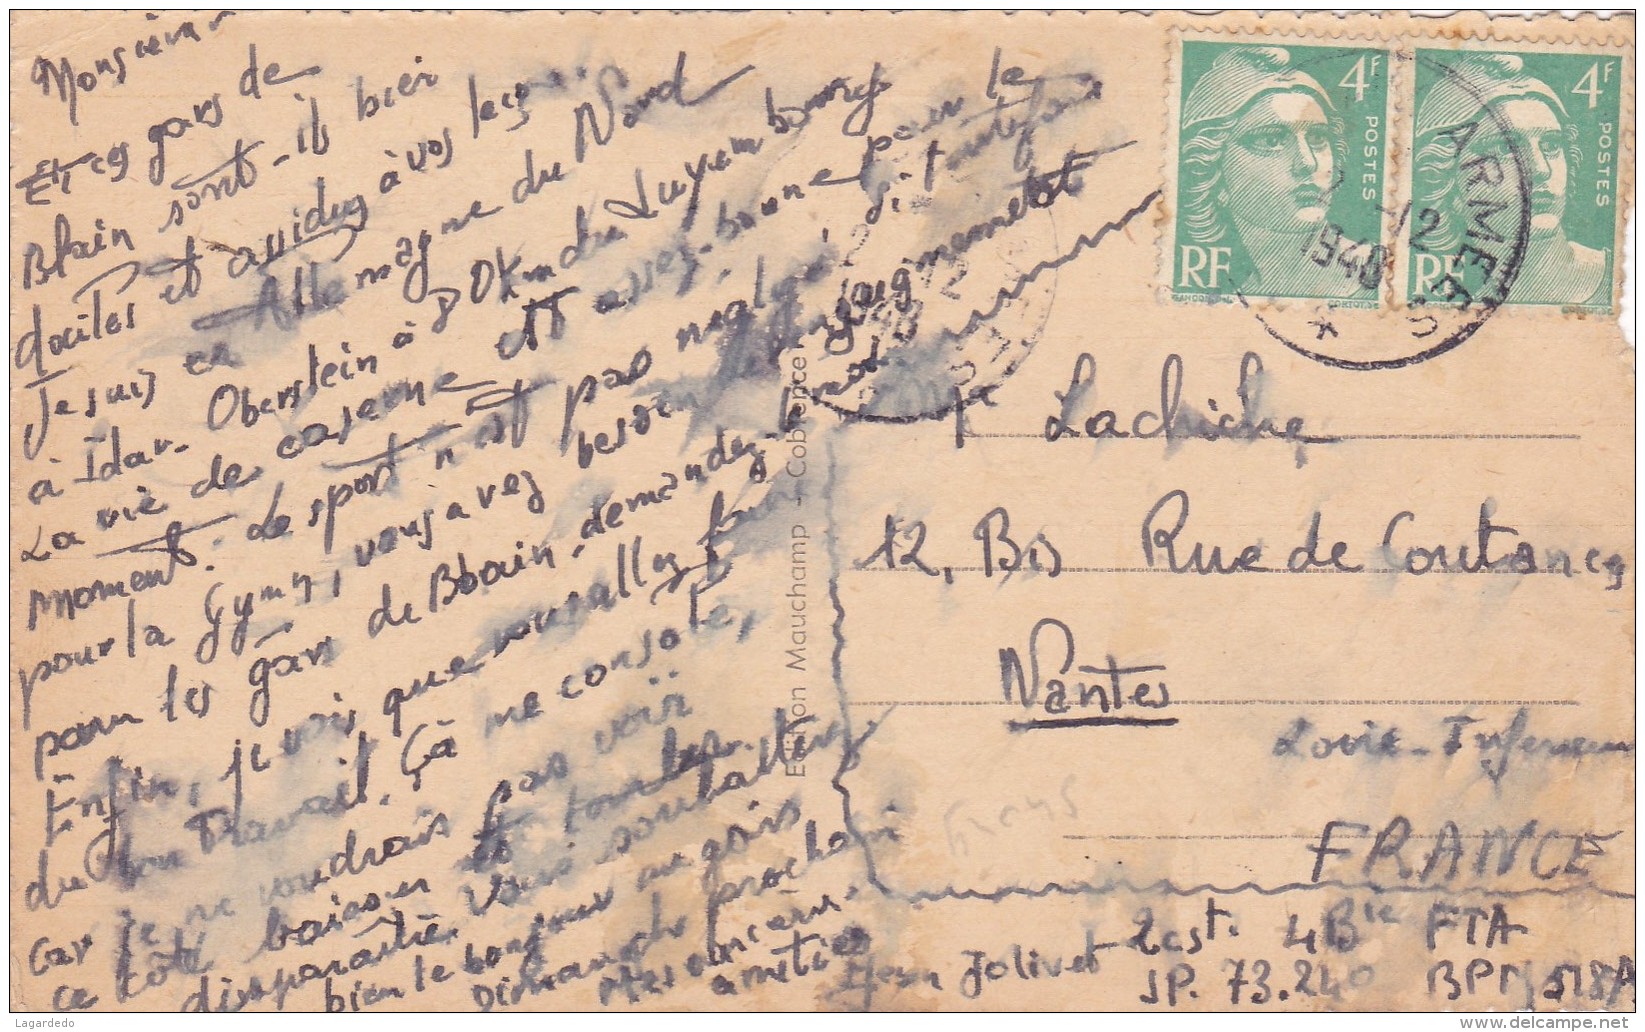 Monsieur
Et ces gars de
Blain sont-ils bien
dociles et assidus à vos leçons.
Je suis en Allemagne du Nord
à Idar-Oberstein à 80 Km du Luxembourg
La vie de caserne est assez bonne pour le
moment. Le sport n'est pas négligé
pour la Gymn, vous avez besoin
pour les gars de Blain, demandez
Enfin, je vois que vous allez faire
du bon travail. Çà me console,
car je ne voudrais pas voir
ce côté baisser et tomber
disparaître. Vous souhaitez
bien le bonjour au gars
Dimanche prochain
amitiés
Jean Jolivet
Edition Mauchamp - Coblence
4F POSTES RF
4F POSTES RF
ARMEES
Mr Lachiche
12, Bis Rue de Coutances
Nantes
Loire-Inferieure
FRANCE
2 est. 4 Bie FTA
SP. 73.240 BPM 518A
Lagardedo
www.delcampe.net